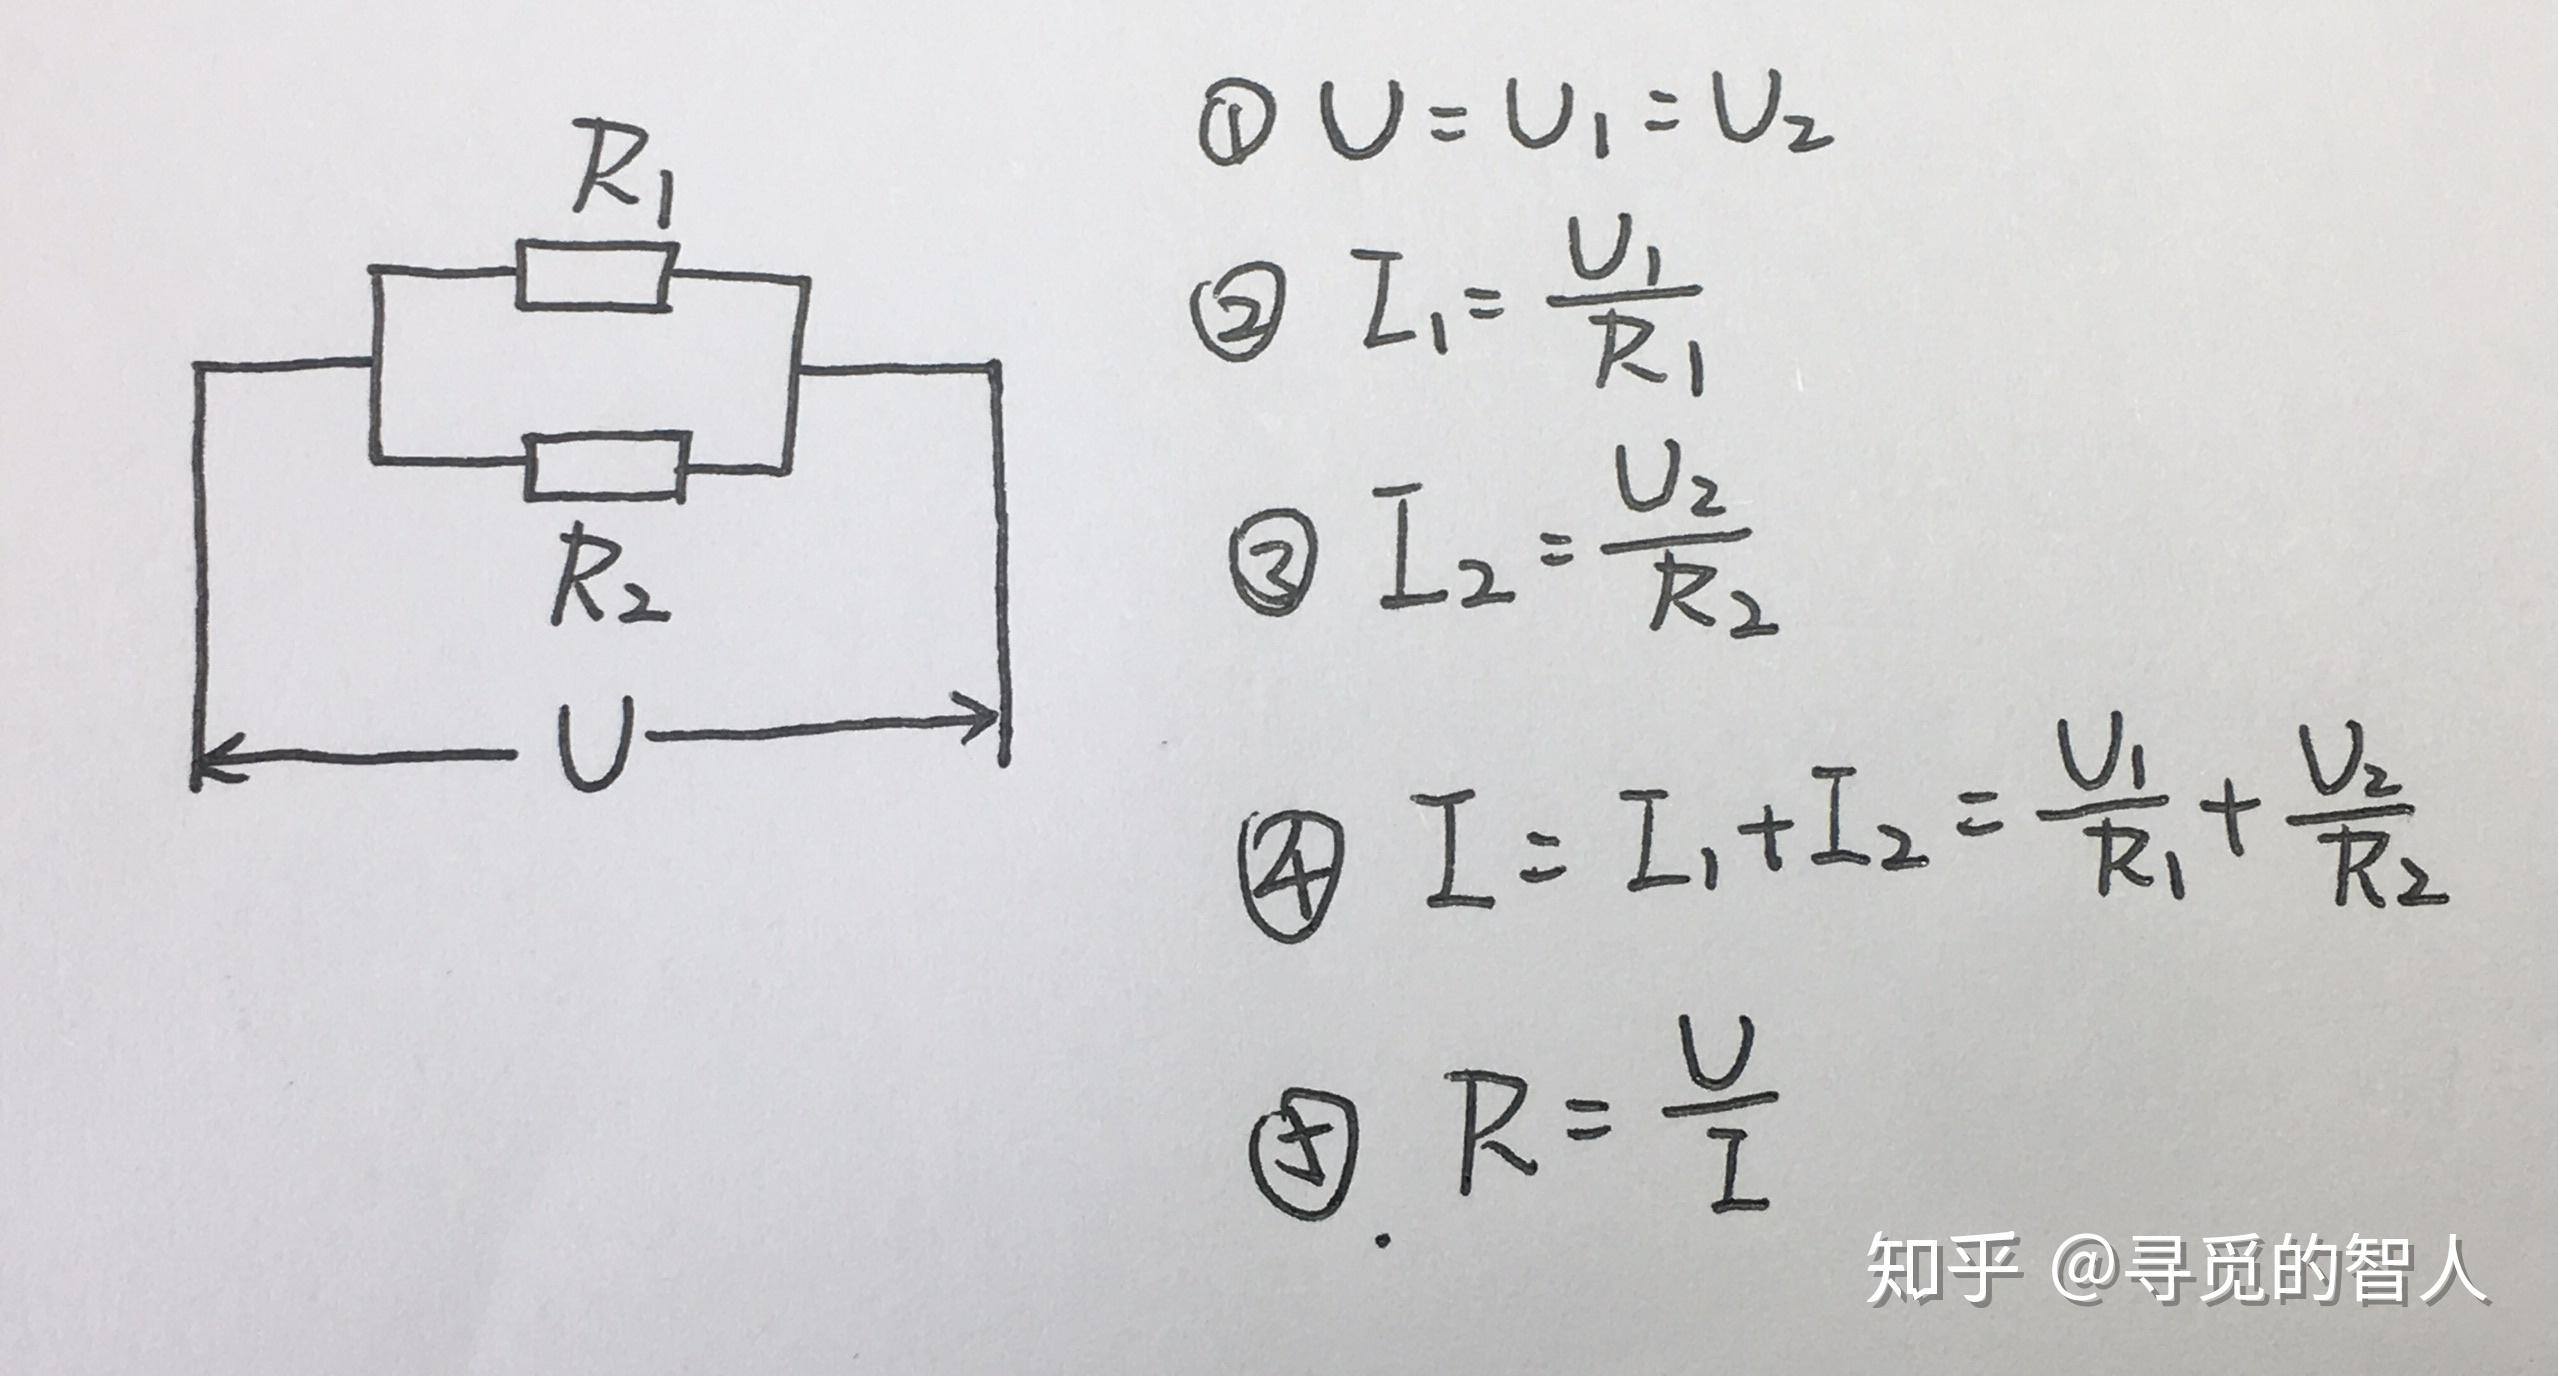 R₁
R₂
U
① U = U₁ = U₂
② I₁ = U₁/R₁
③ I₂ = U₂/R₂
④ I = I₁ + I₂ = U₁/R₁ + U₂/R₂
⑤. R = U/I
知乎 @寻觅的智人